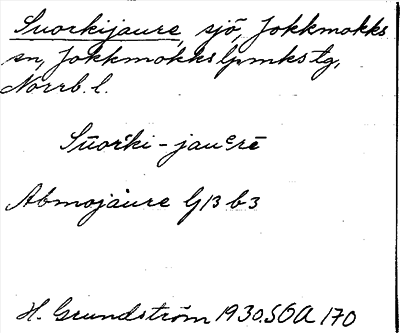 Suorkijaure, sjö, Jokkmokks
sn, Jokkmokks lpmks tg,
Norrb. l.
Sūorki - jauᵉrē
Abmojaure G 13 b 3
H. Grundström 1930. SOA 170